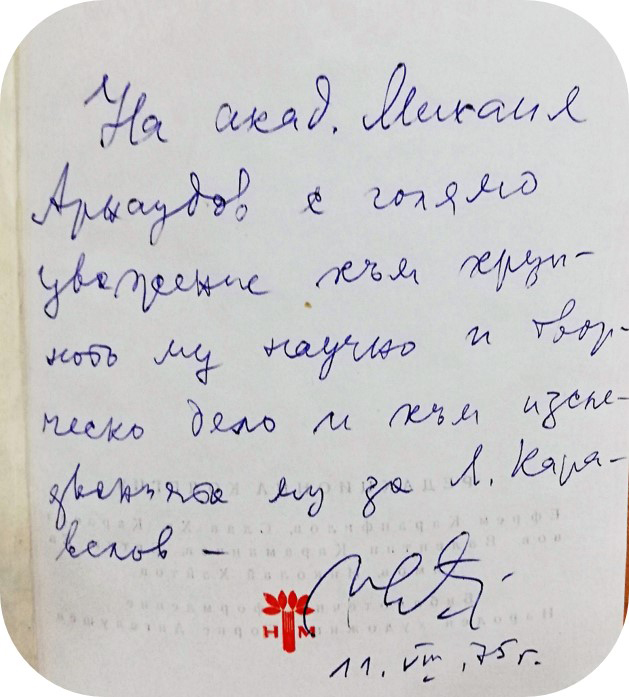 На акад. Михаил
Арнаудов с голямо
уважение към круп-
ното му научно и твор-
ческо дело и към изсле-
дванията му за Л. Кара-
велов –
НМ
11. VIII. 75 г.